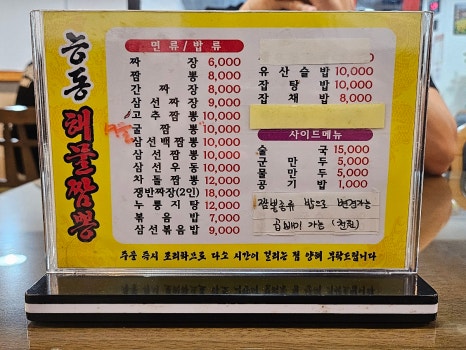 능동 해물짬뽕
면류/밥류
짜장 6,000
짬뽕 8,000
간짜장 8,000
삼선짜장 9,000
고추짬뽕 10,000
굴짬뽕 10,000
삼선백짬뽕 10,000
삼선짬뽕 10,000
삼선우동 10,000
차돌짬뽕 12,000
쟁반짜장(2인) 18,000
누룽지탕 12,000
볶음밥 7,000
삼선볶음밥 9,000
유산슬밥 10,000
잡탕밥 10,000
잡채밥 8,000
사이드메뉴
술국 15,000
군만두 5,000
물만두 5,000
공기밥 1,000
짬뽕종류 밥으로 변경가능
곱배기 가능 (천원)
주문 즉시 조리하므로 다소 시간이 걸리는 점 양해 부탁드립니다